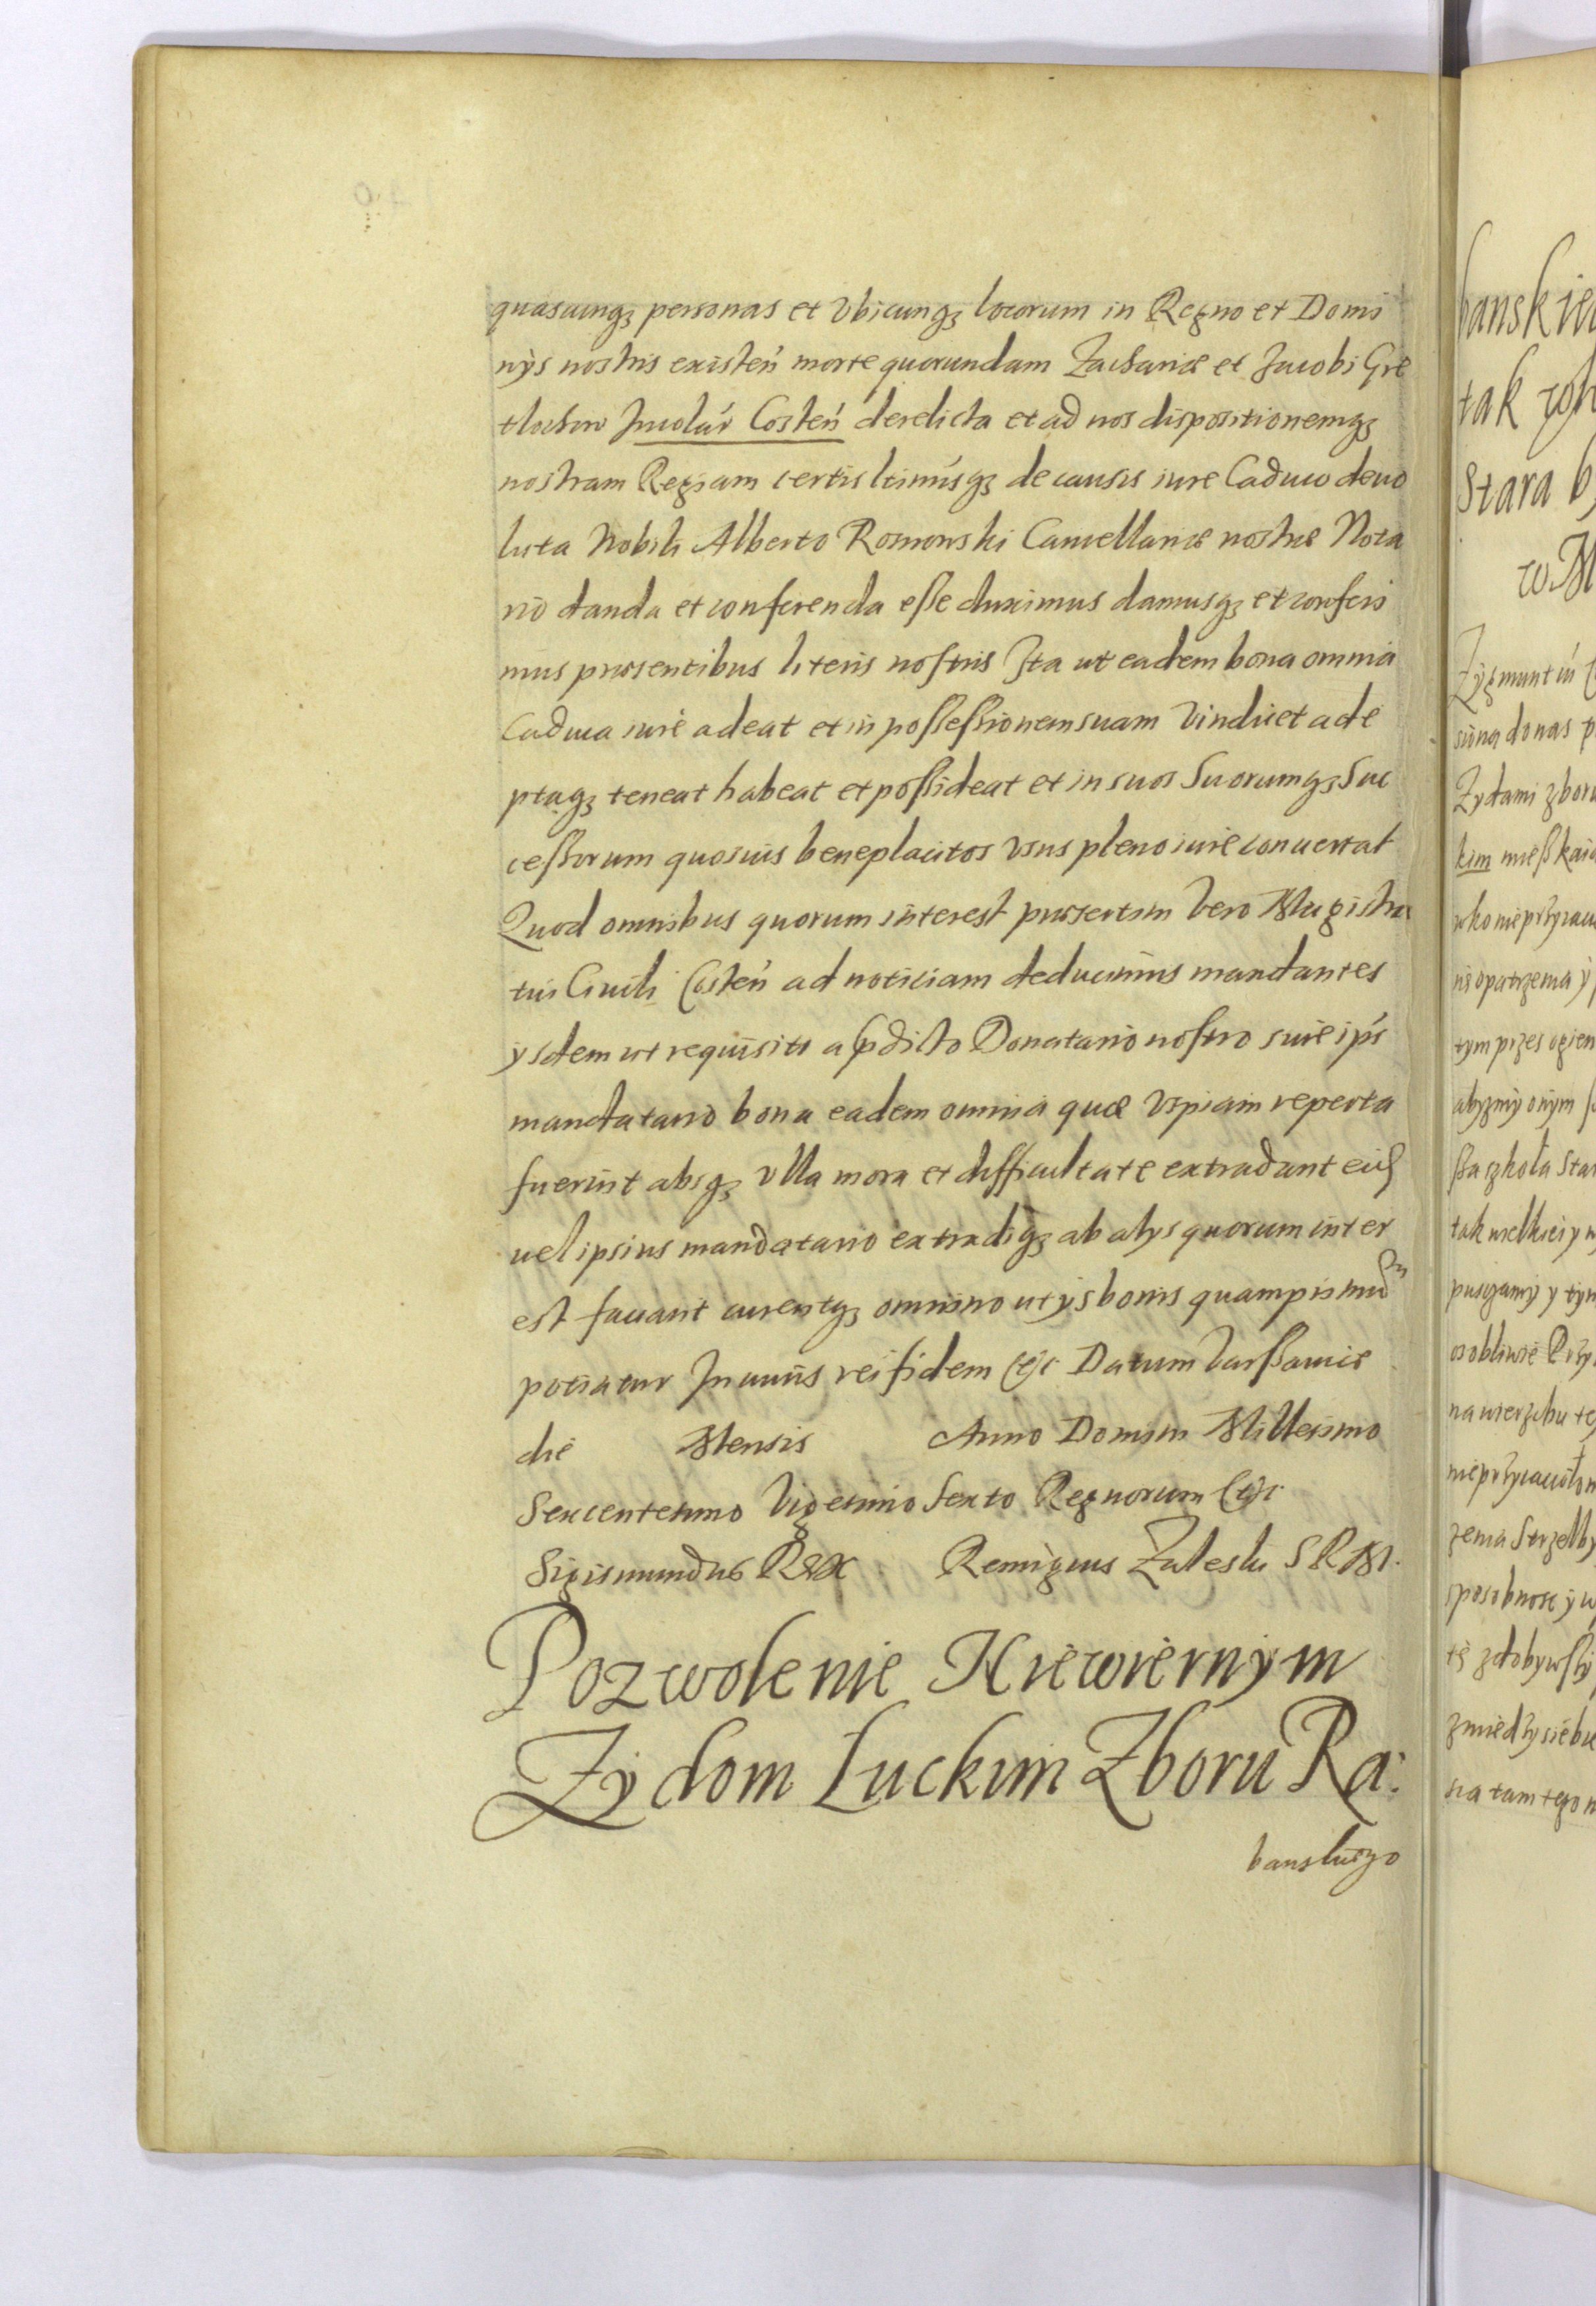 quascunqꝫ personas et Vbicunqꝫ locorum in Regno et Domi
nÿs nostris existeń morte quorundam Zachariæ et Jacobi Gre
tlochow Jncolár Costeń derelicta et ad nos dispositionemqꝫ
nostram Regiam certis ltimisqꝫ de causis iure Caduco deuo
luta Nobili Alberto Rosnowski Cancellariæ nostræ Nota
rio danda et conferenda eſſe duximus damusqꝫ et conferi
mus præsentibus literis nostris Jta ut eadem bona omnia
Caduca iure adeat et in poſſeſſionem suam Vindicet ade
ptaqꝫ teneat habeat et poſſideat et in suos Suorumqꝫ Suc
ceſſorum quosuis beneplacitos Vsus pleno iure conuertat
Quod omnibus quorum interest præsertim Vero Magistra
tui Ciuili Costeń ad noticiam deducimus mandantes
ysdem ut requisiti a pdicto Donatario nostro siue ips
mandatario bona eadem omnia quæ Vspiam reperta
fuerint absqꝫ Vlla mora et difficultate extradant
uel ipsius mandatario extradiqꝫ ab alys quorum inter
est faciant curentqꝫ omnino ut ys bonis
potiatur Jn cuius rei fidem etc Datum Varſſauiæ
die Mensis Anno Domini Millesimo
Sexcentesimo Vigesimo Sexto Regnorum etc
Sigismundus Rex Remigius Zaleski S R M.
Pozwolenie Niewiernÿm
Zÿdom Łuckim Zboru Ra:
banskiego
banskie
tak
Stara
w
Zÿgmunt
donas
Zydami zboru
kim mieſſkai
opatrzenia ÿ
tym przes ogien
abyzmÿ onÿm
szkoła
tak wielkiei y
y tÿm
osobliwie
na wierzchu
Strzelby
sposobnosc ÿ
zdobywſſy
tamtego